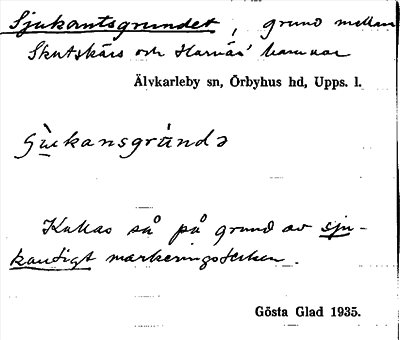 Sjukantsgrundet, grund mellan
Skutskärs och Harnäs' hamnar
Älvkarleby sn, Örbyhus hd, Upps. l.
Kallas så på grund av sju-
kantigt markeringstecken.
Gösta Glad 1935.